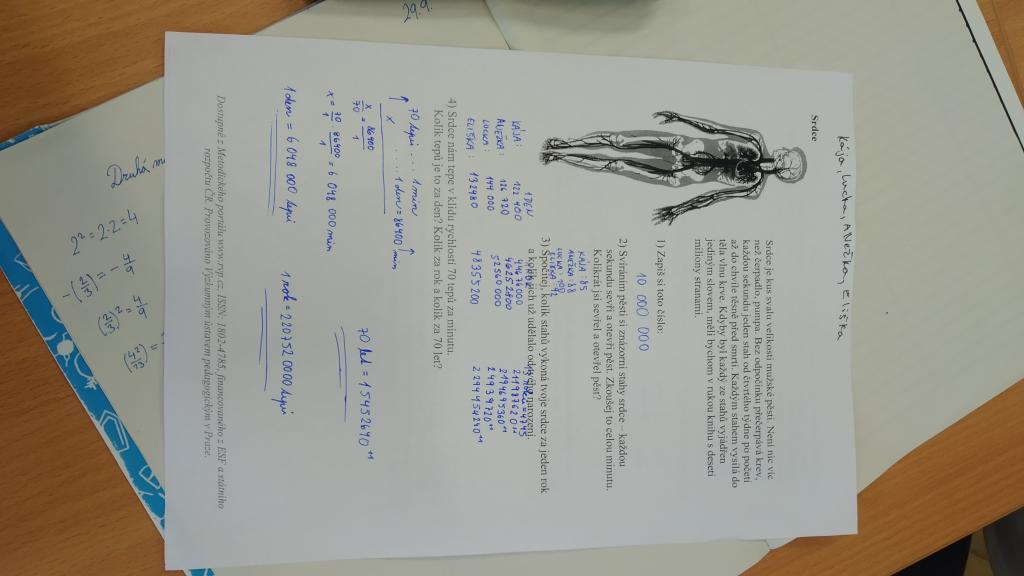 Kája, Lucka, ANEŽKA, Eliška
Srdce
Srdce je kus svalu velikosti mužské pěsti. Není nic víc
než čerpadlo, pumpa. Bez odpočinku přečerpává krev,
každou sekundu jeden stah od čtvrtého týdne po početí
až do chvíle těsně před smrtí. Každým stahem vysílá do
těla vlnu krve. Kdyby byl každý ze stahů vyjádřen
jediným slovem, měli bychom v rukou knihu s deseti
miliony stranami.
1) Zapiš si toto číslo:
10 000 000
2) Svíráním pěsti si znázorni stahy srdce – každou
sekundu sevři a otevři pěst. Zkoušej to celou minutu.
Kolikrát jsi sevřel a otevřel pěst?
KÁJA: 85
ANEŽKA: 88
LUCKA: 100
ELIŠKA: 92
3) Spočítej, kolik stahů vykoná tvoje srdce za jeden rok
a kolik jich už udělalo od tvého narození.
1 DEN
KÁJA: 122 400
ANEŽKA: 126 720 46252800
LUCKA: 144 000 52560000
ELIŠKA: 132480 48355200
4) Srdce nám tepe v klidu rychlostí 70 tepů za minutu.
Kolik tepů je to za den? Kolik za rok a kolik za 70 let?
↑ 70 tepů ... 1 min ↑
x .... 1 den = 86400 min
x/70 = 86400/1
x = 70/1 · 86400/1 = 6 048 000 min
1 den = 6 048 000 tepů
1 rok = 2207520000 tepů
70 let = 1545264 0"
Dostupné z Metodického portálu www.rvp.cz, ISSN: 1802-4785, financovaného z ESF a státního
rozpočtu ČR. Provozováno Výzkumným ústavem pedagogickým v Praze.
29.9.
Druhá
2² = 2·2 = 4